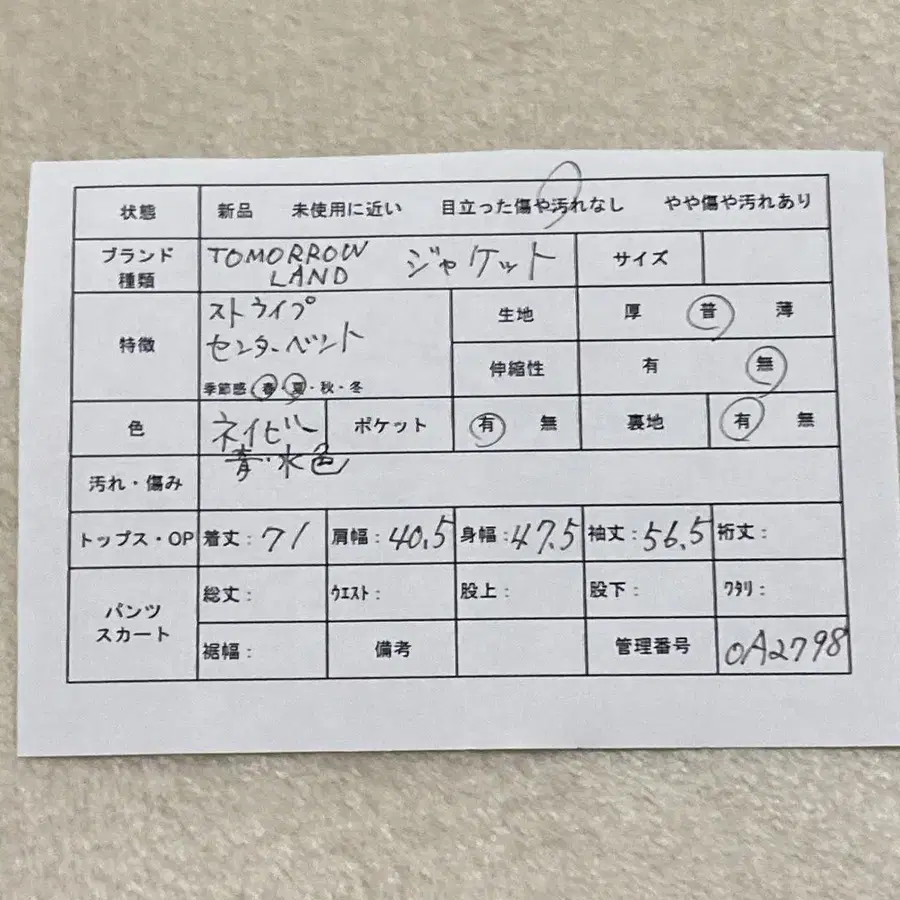 状態 新品 未使用に近い 目立った傷や汚れなし やや傷や汚れあり
ブランド 種類 TOMORROW LAND ジャケット サイズ
特徴 ストライプ
センターベント
季節感・春・夏・秋・冬
生地 厚 普 薄
伸縮性 有 無
色 ネイビー 青・水色 ポケット 有 無 裏地 有 無
汚れ・傷み
トップス・OP 着丈：71 肩幅：40.5 身幅：47.5 袖丈：56.5 裄丈：
パンツ スカート 総丈： ウエスト： 股上： 股下： ワタリ：
裾幅： 備考 管理番号 0A2798